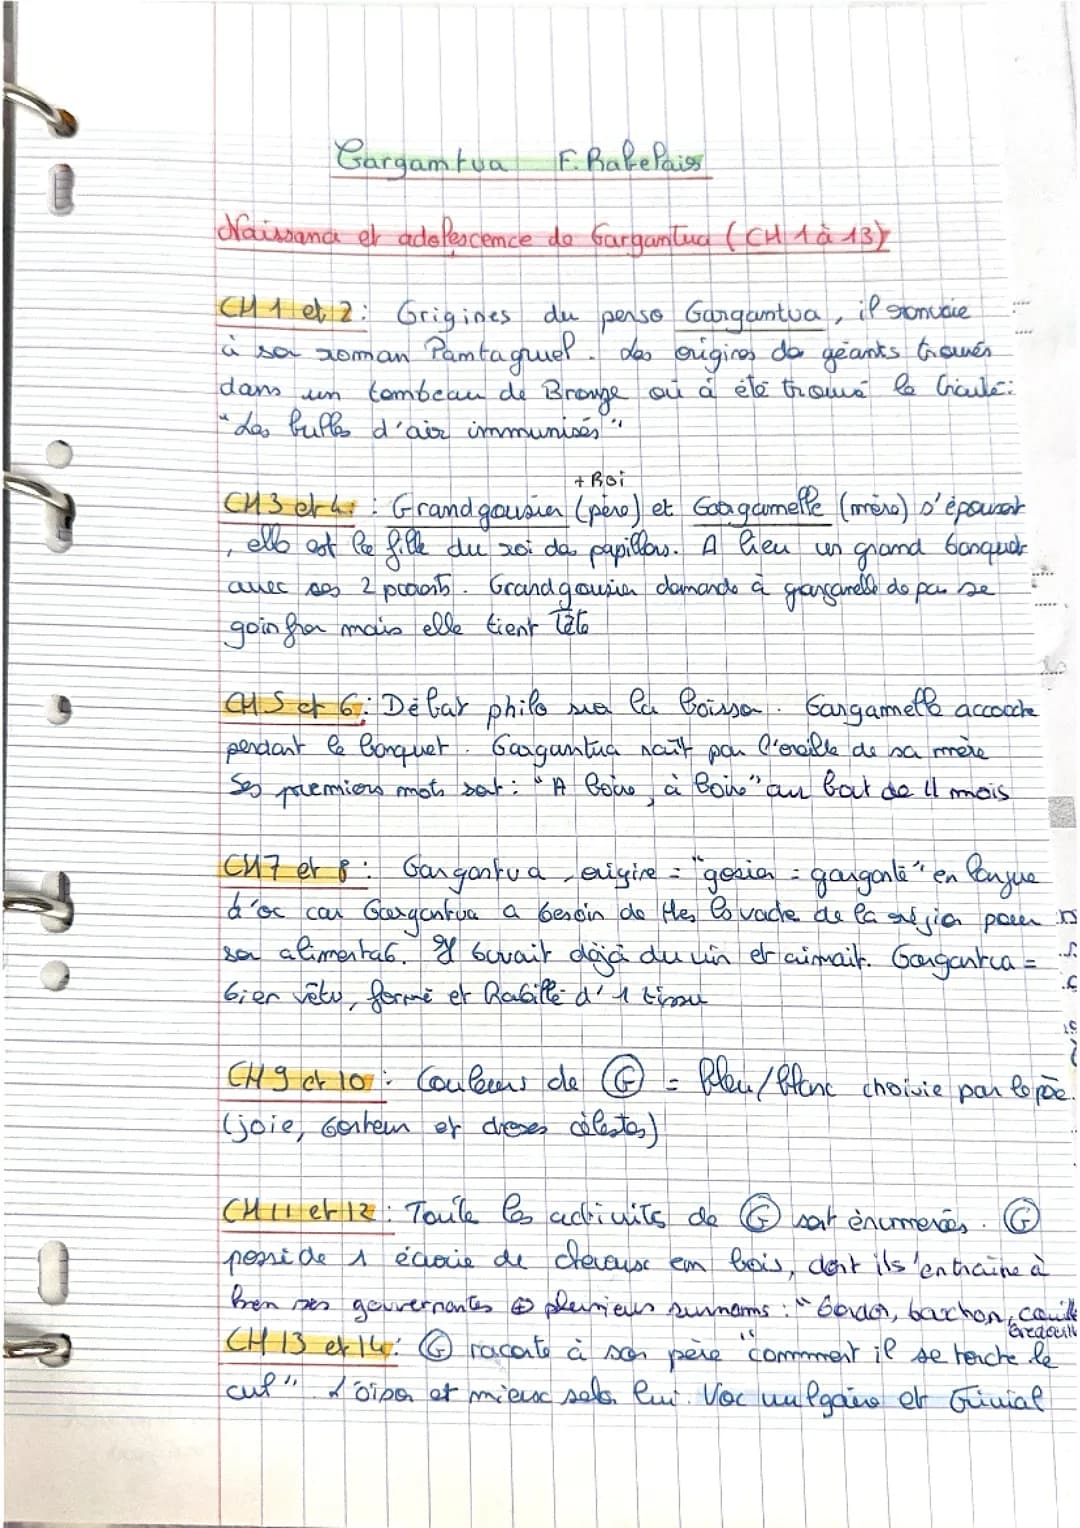 Gargantua F. Rabelais
Naissance et adolescence de Gargantua (CH 1 à 13)
CH 1 et 2 : Origines du perso Gargantua, il renvoie
à son roman Pantagruel. des origines de géants trouvés
dans un tombeau de Bronze où à été trouvé le traité :
"Les bulles d'air immunisés"
+ Roi
CH 3 et 4 : Grandgousier (père) et Gargamelle (mère) s'épousent
, elle est la fille du roi des papillons. A lieu un grand banquet
avec ses 2 parents. Grandgousier demande à gargamelle de pas se
goinfrer mais elle tient Tête
CH 5 et 6 : Débat philo sur la boisson. Gargamelle accouche
pendant le banquet. Gargantua naît par l'oreille de sa mère
Ses premiers mots sont : "A boire, à boire" au bout de 11 mois
CH 7 et 8 : Gargantua, origine = "gosier = gargante" en langue
d'oc car Gargantua a besoin de ttes les vache de la région pour
son alimentat°. Il buvait déjà du vin et aimait. Gargantua =
bien vêtu, formé et habillé d'1 tissu
CH 9 et 10 : Couleurs de G = bleu/blanc choisie par le père.
(joie, bonheur et choses célestes)
CH 11 et 12 : Toute les activités de G sont énumerés. G
possède 1 écurie de chevaux en bois, dont il s'entraîne à
ses gouvernantes plusieurs surnoms : "bondon,
CH 13 et 14 : G raconte à son père "commment il se torche le
cul". L'oison et mieux selon lui. Voc vulgaire et trivial